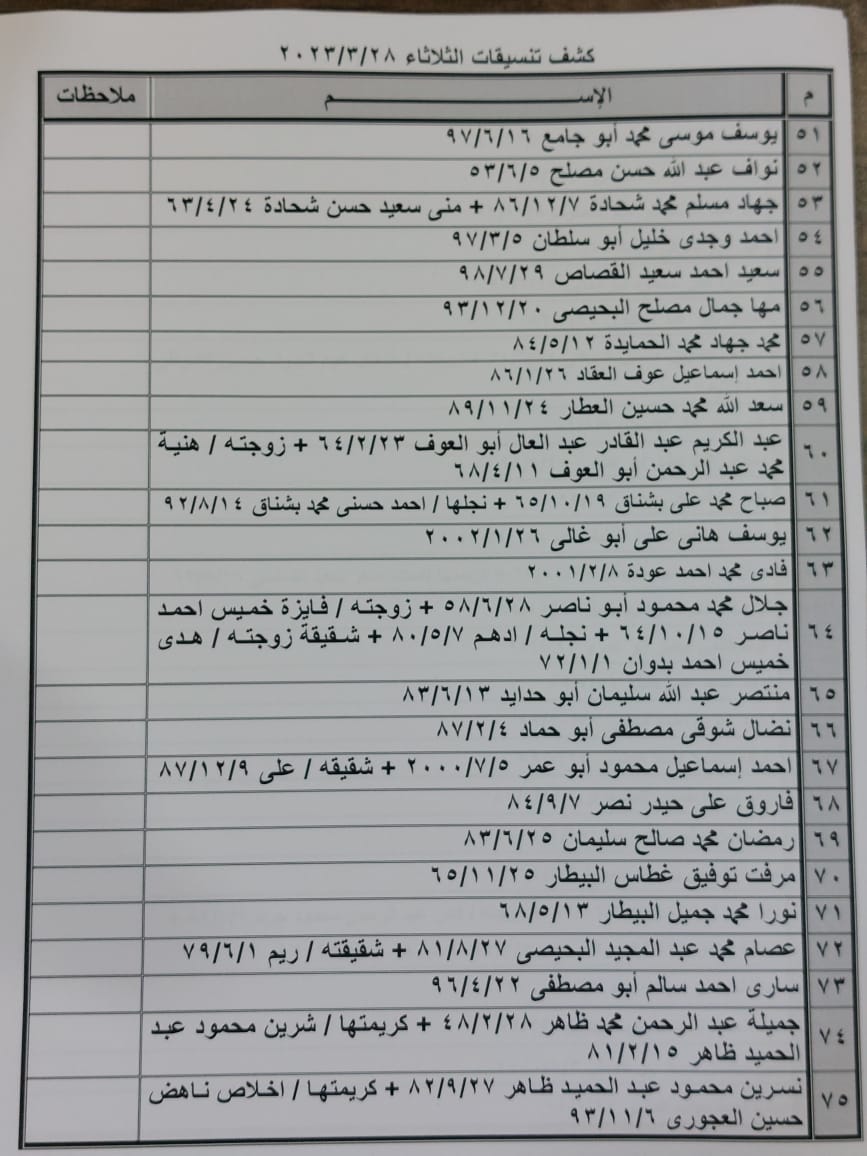 كشف تنسيقات الثلاثاء ٢٠٢٣/٣/٢٨
م الإســـم ملاحظات
٥١ يوسف موسى محمد أبو جامع ٩٧/٦/١٦
٥٢ نواف عبد الله حسن مصلح ٥٣/٦/٥
٥٣ جهاد مسلم محمد شحادة ٨٦/١٢/٧ + منى سعيد حسن شحادة ٦٣/٤/٢٤
٥٤ احمد وجدى خليل أبو سلطان ٩٧/٣/٥
٥٥ سعيد احمد سعيد القصاص ٩٨/٧/٢٩
٥٦ مها جمال مصلح البحيصى ٩٣/١٢/٢٠
٥٧ محمد جهاد محمد الحمايدة ٨٤/٥/١٢
٥٨ احمد إسماعيل عوف العقاد ٨٦/١/٢٦
٥٩ سعد الله محمد حسين العطار ٨٩/١١/٢٤
٦٠ عبد الكريم عبد القادر عبد العال أبو العوف ٦٤/٢/٢٣ + زوجته / هنية
محمد عبد الرحمن أبو العوف ٦٨/٤/١١
٦١ صباح محمد على بشناق ٦٥/١٠/١٩ + نجلها / احمد حسنى محمد بشناق ٩٢/٨/١٤
٦٢ يوسف هانى على أبو غالى ٢٠٠٢/١/٢٦
٦٣ فادى محمد احمد عودة ٢٠٠١/٢/٨
٦٤ جلال محمد محمود أبو ناصر ٥٨/٦/٢٨ + زوجته / فايزة خميس احمد
ناصر ٦٤/١٠/١٥ + نجله / ادهم ٨٠/٥/٧ + شقيقة زوجته / هدى
خميس احمد بدوان ٧٢/١/١
٦٥ منتصر عبد الله سليمان أبو حدايد ٨٣/٦/١٣
٦٦ نضال شوقى مصطفى أبو حماد ٨٧/٢/٤
٦٧ احمد إسماعيل محمود أبو عمر ٢٠٠٠/٧/٥ + شقيقه / على ٨٧/١٢/٩
٦٨ فاروق على حيدر نصر ٨٤/٩/٧
٦٩ رمضان محمد صالح سليمان ٨٣/٦/٢٥
٧٠ مرفت توفيق غطاس البيطار ٦٥/١١/٢٥
٧١ نورا محمد جميل البيطار ٦٨/٥/١٣
٧٢ عصام محمد عبد المجيد البحيصى ٨١/٨/٢٧ + شقيقته / ريم ٧٩/٦/١
٧٣ سارى احمد سالم أبو مصطفى ٩٦/٤/٢٢
٧٤ جميلة عبد الرحمن محمد ظاهر ٤٨/٢/٢٨ + كريمتها / شرين محمود عبد
الحميد ظاهر ٨١/٢/١٥
٧٥ نسرين محمود عبد الحميد ظاهر ٨٢/٩/٢٧ + كريمتها / اخلاص ناهض
حسين العجورى ٩٣/١١/٦